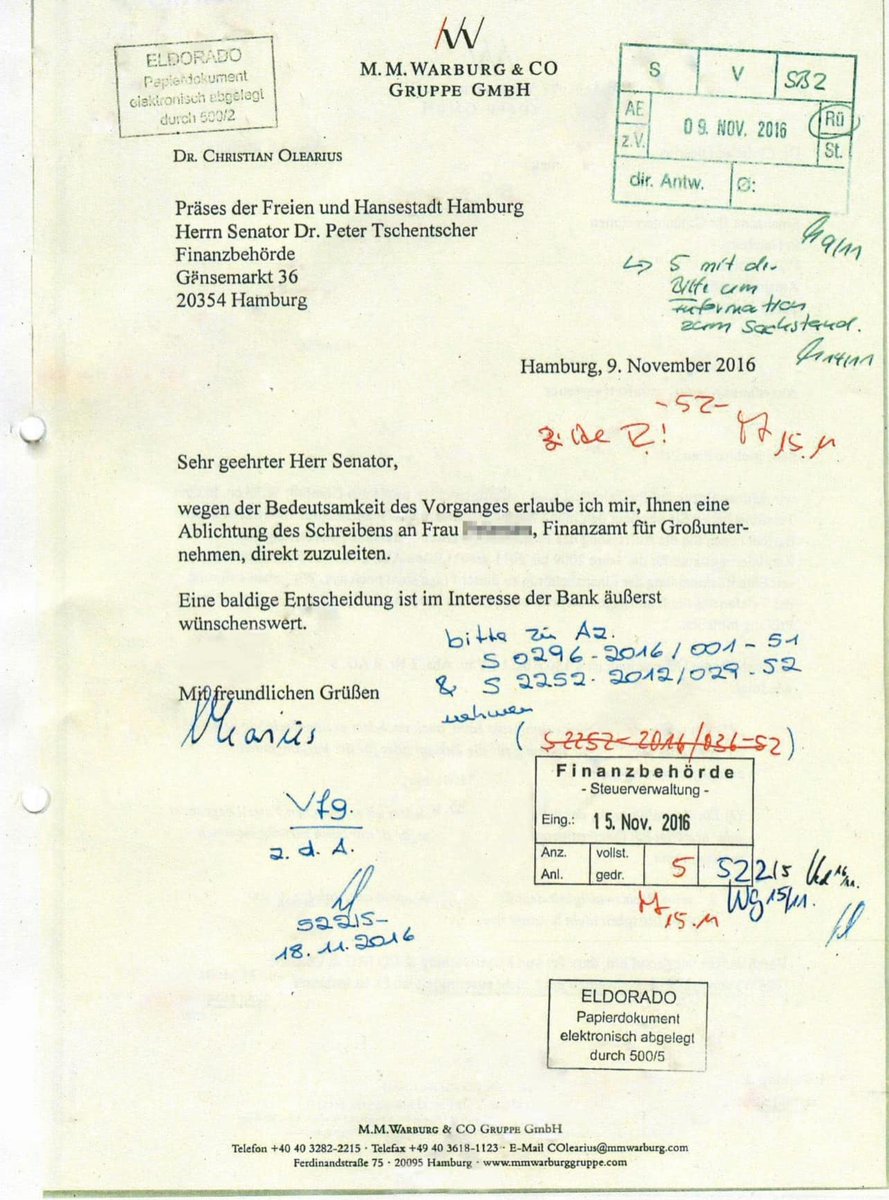 M. M. WARBURG & CO
GRUPPE GMBH
ELDORADO
Papierdokument
elektronisch abgelegt
durch 500/2
S V SB2
AE
z.V.
09. NOV. 2016
Rü
St.
dir. Antw. Ø:
DR. CHRISTIAN OLEARIUS
Präses der Freien und Hansestadt Hamburg
Herrn Senator Dr. Peter Tschentscher
Finanzbehörde
Gänsemarkt 36
20354 Hamburg
9/11
↳ 5 mit der
Bitte um
Information
zum Sachstand.
14/11
Hamburg, 9. November 2016
-52-
15.11
Sehr geehrter Herr Senator,
wegen der Bedeutsamkeit des Vorganges erlaube ich mir, Ihnen eine
Ablichtung des Schreibens an Frau , Finanzamt für Großunter-
nehmen, direkt zuzuleiten.
Eine baldige Entscheidung ist im Interesse der Bank äußerst
wünschenswert.
bitte zu Az.
S 0296-2016/001-51
& S 2252-2012/029-52
nehmen
(S 2252-2016/036-52)
Mit freundlichen Grüßen
Olearius
Vfg.
z. d. A.
522/5-
18.11.2016
Finanzbehörde
- Steuerverwaltung -
Eing.: 15. Nov. 2016
Anz.
Anl.
vollst.
gedr.
5
522/5
16/11.
Wg 15/11.
15.11
ELDORADO
Papierdokument
elektronisch abgelegt
durch 500/5
M.M.WARBURG & CO GRUPPE GMBH
Telefon +40 40 3282-2215 · Telefax +49 40 3618-1123 · E-Mail COlearius@mmwarburg.com
Ferdinandstraße 75 · 20095 Hamburg · www.mmwarburggruppe.com